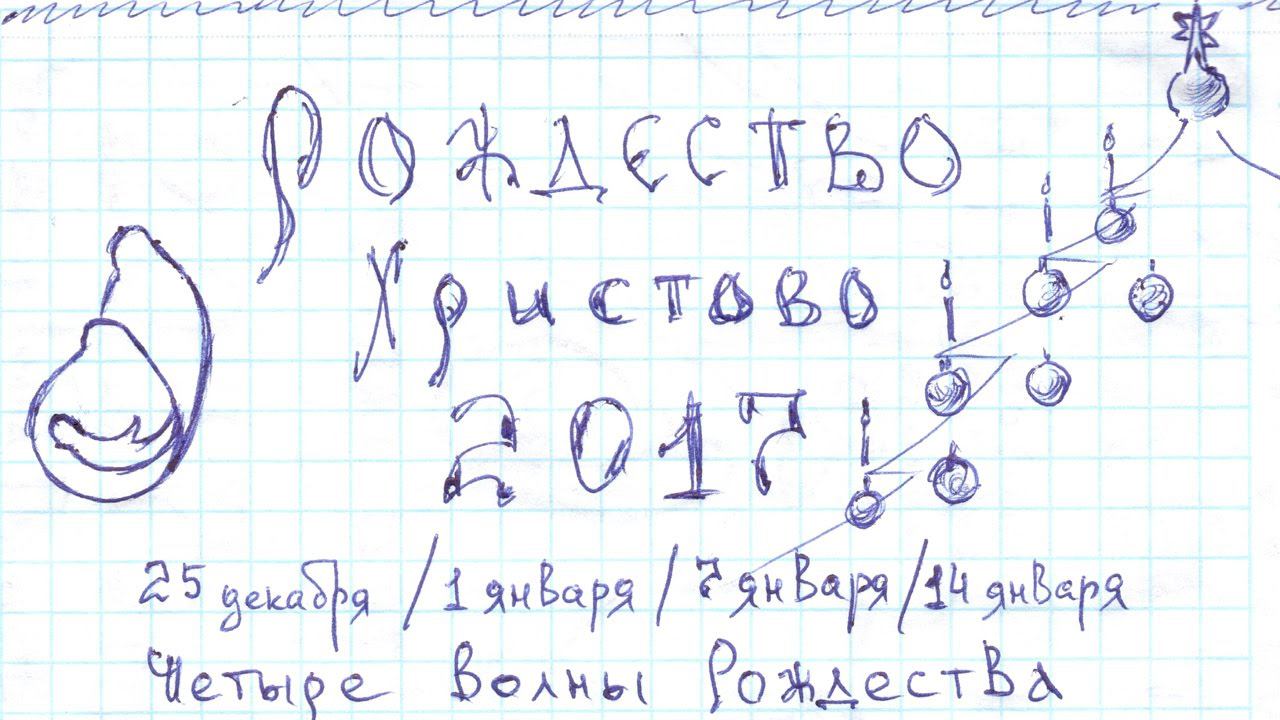 Рождество
Христово
2017
25 декабря / 1 января / 7 января / 14 января
Четыре волны Рождества